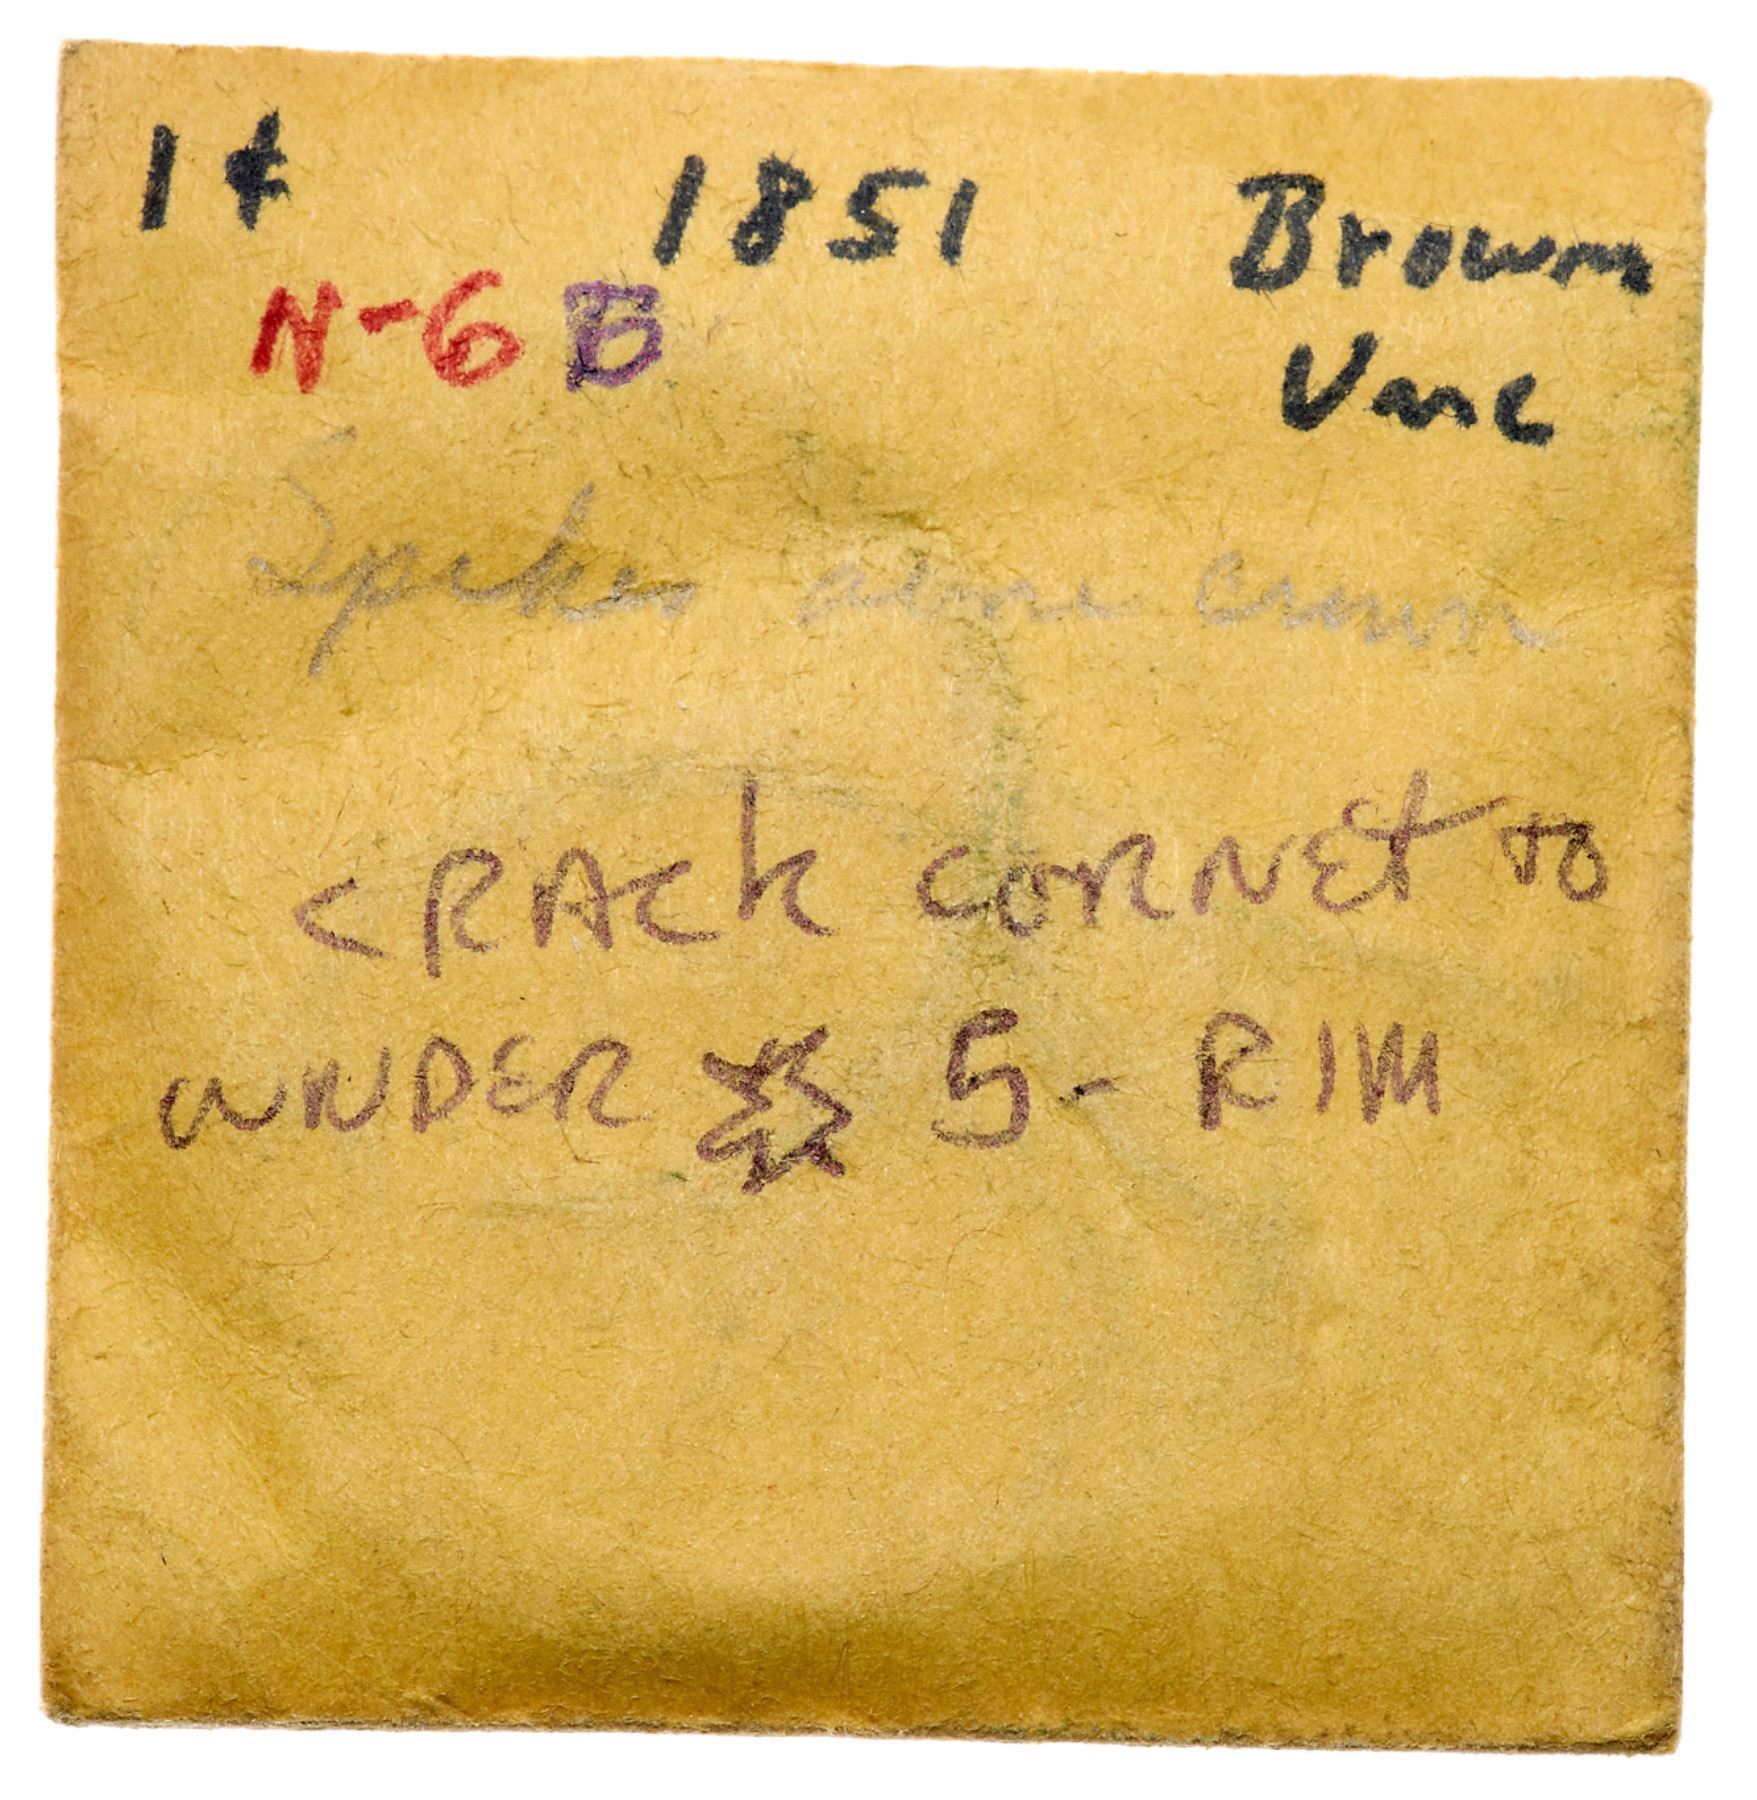 1¢ 1851 Brown
N-6 B Unc
Spikes above crown
CRACK CORNET TO
UNDER ☆ 5 - RIM